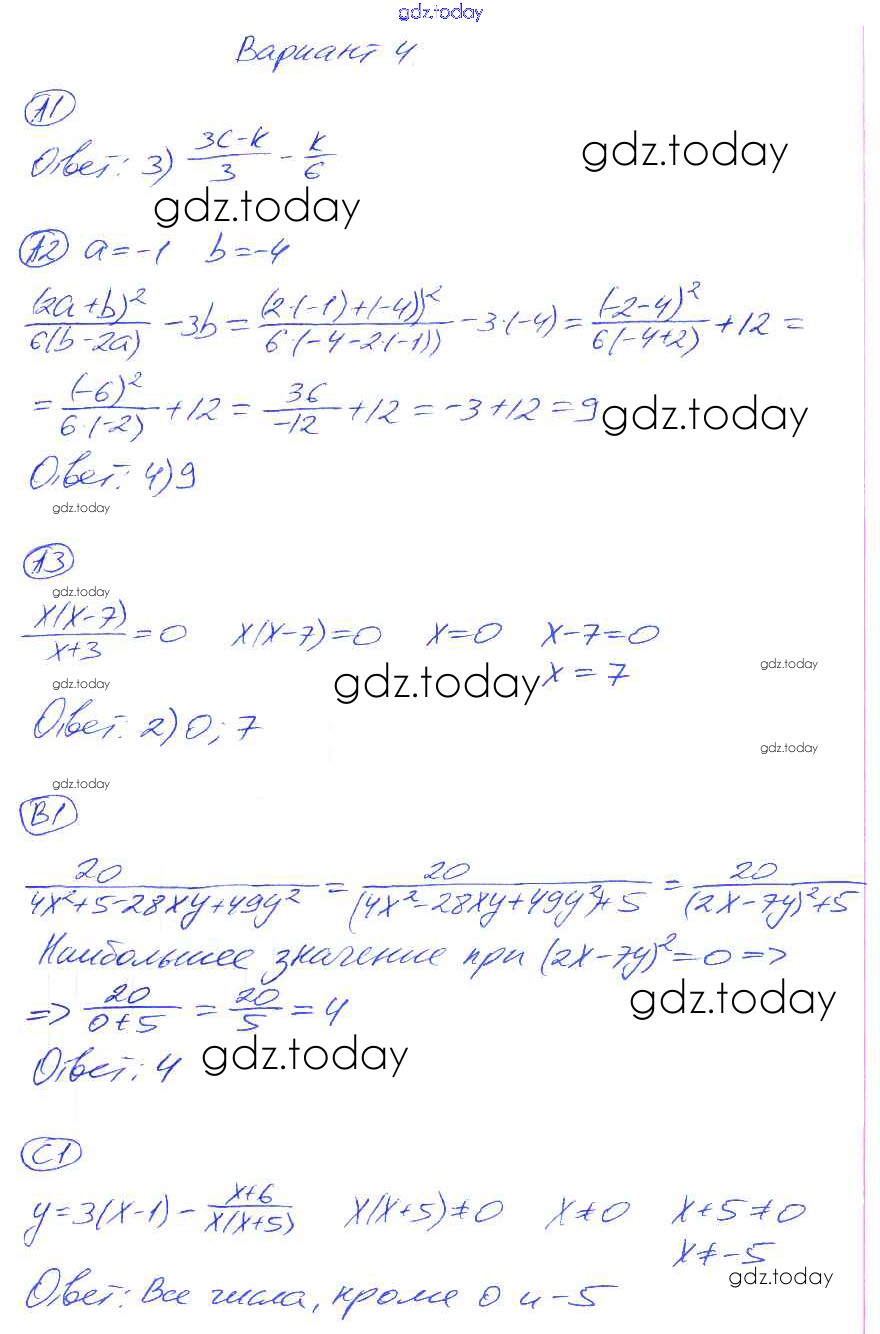 gdz.today
Вариант 4
А1
Ответ: 3) (3c-k)/3 - k/6
gdz.today
gdz.today
А2 a=-1 b=-4
(2a+b)²/6(b-2a) -3b = (2·(-1)+(-4))²/6·(-4-2·(-1)) -3·(-4) = (-2-4)²/6(-4+2) +12 =
= (-6)²/6·(-2) +12 = 36/-12 +12 = -3+12=9
gdz.today
Ответ: 4) 9
gdz.today
А3
gdz.today
x(x-7)/x+3 =0 x(x-7)=0 x=0 x-7=0
x=7
gdz.today
gdz.today
gdz.today
Ответ: 2) 0; 7
gdz.today
gdz.today
В1
20/4x²+5-28xy+49y² = 20/(4x²-28xy+49y²)+5 = 20/(2x-7y)²+5
Наибольшее значение при (2x-7y)²=0 =>
=> 20/0+5 = 20/5 = 4
gdz.today
Ответ: 4
gdz.today
С1
y=3(x-1) - x+6/x(x+5) x(x+5)≠0 x≠0 x+5≠0
x≠-5
gdz.today
Ответ: Все числа, кроме 0 и -5